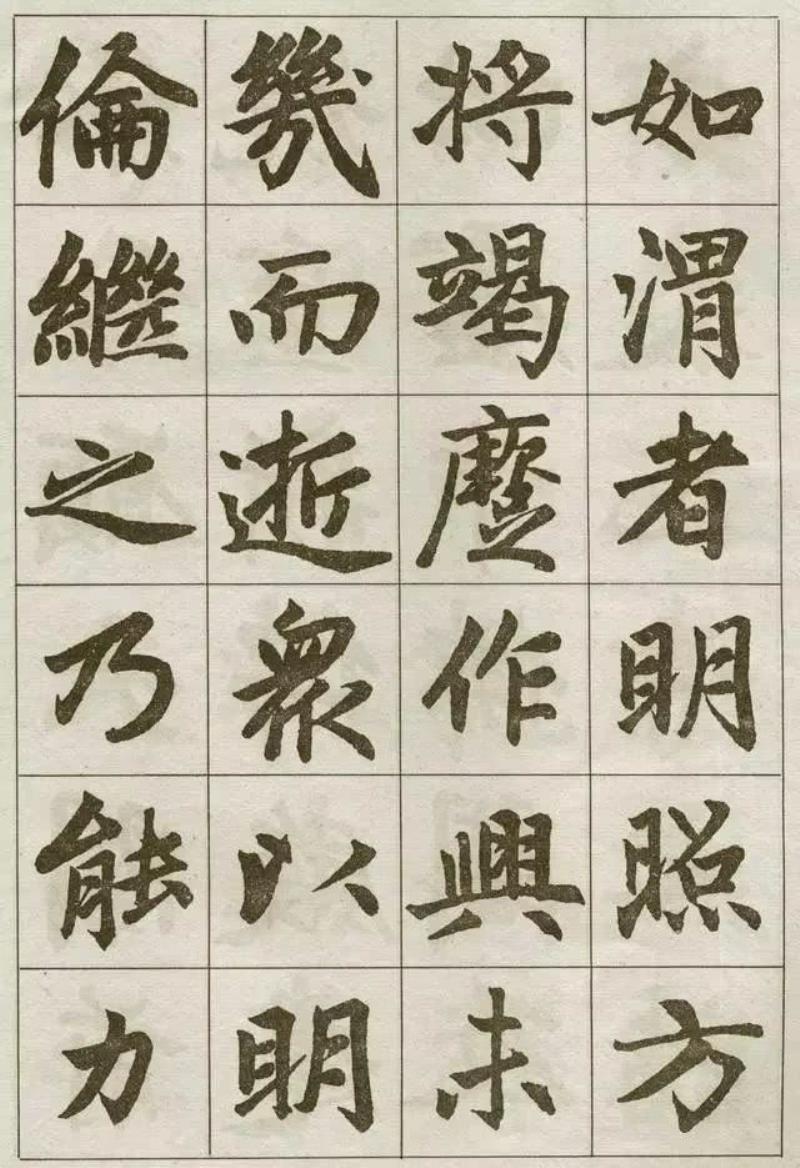 如渭者明照方
將竭蹷作興未
幾而逝衆以明
倫繼之乃能力